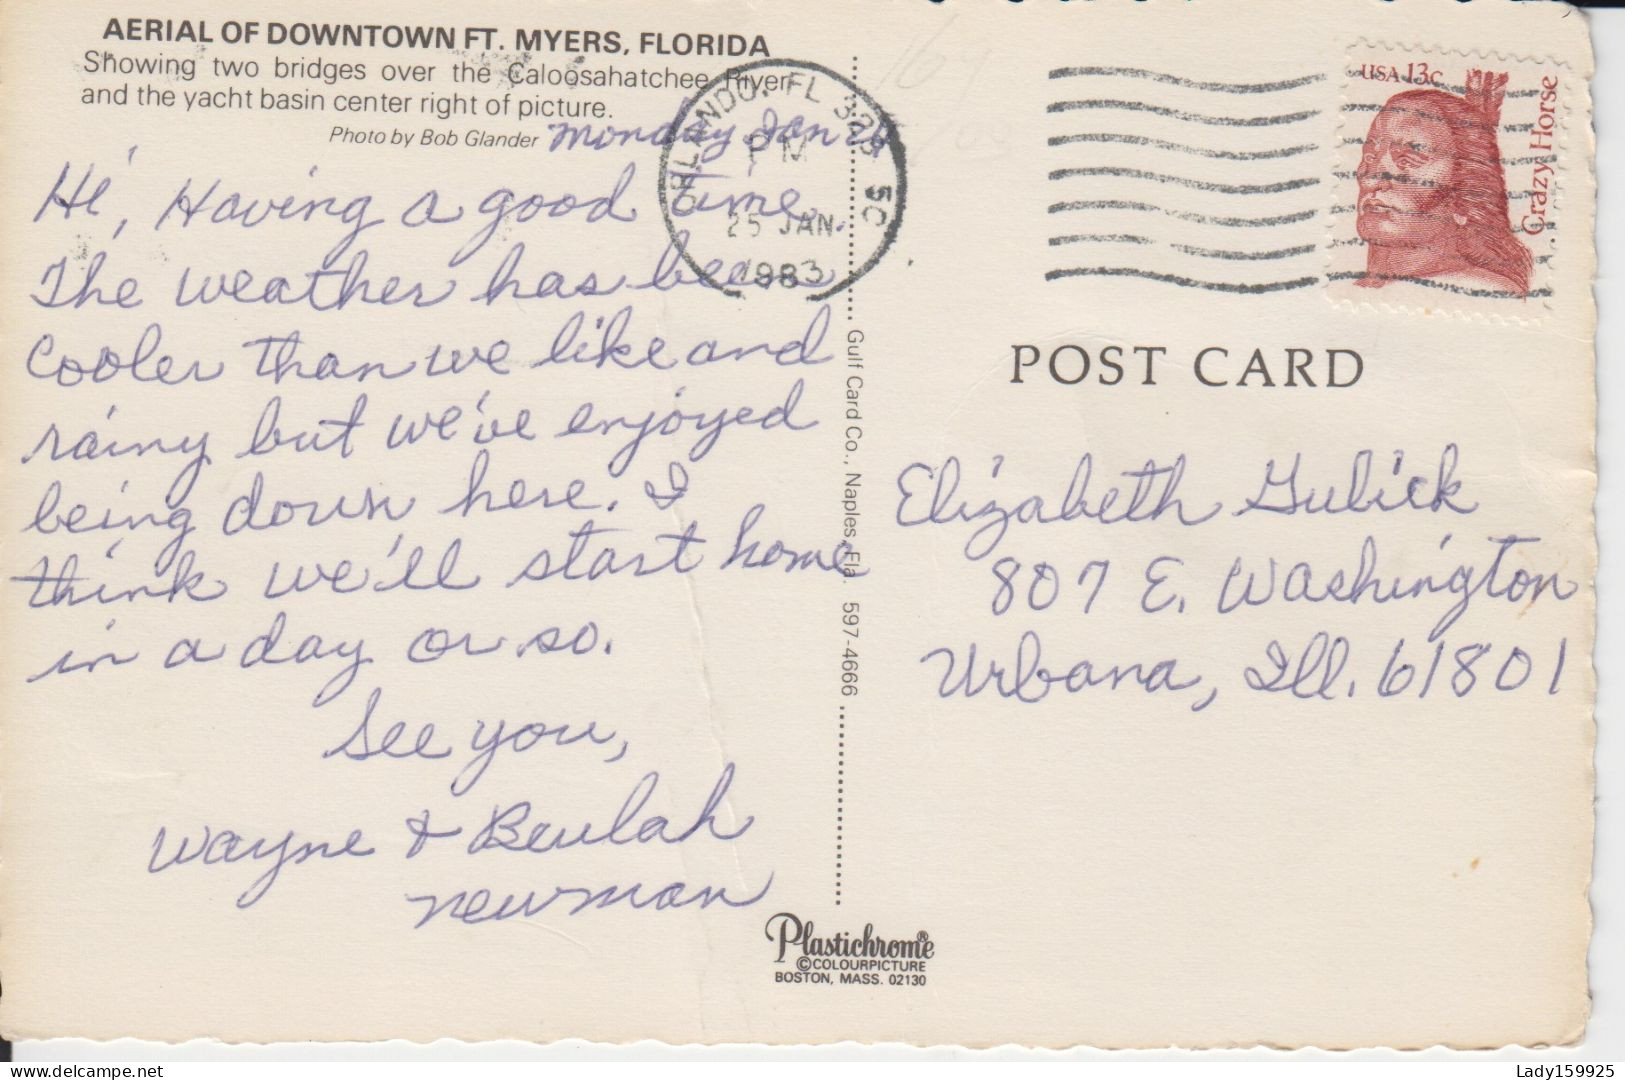 AERIAL OF DOWNTOWN FT. MYERS, FLORIDA
Showing two bridges over the Caloosahatchee River
and the yacht basin center right of picture.
Photo by Bob Glander
Monday Jan 24
Hi, Having a good time.
The weather has been
cooler than we like and
rainy but we've enjoyed
being down here. I
think we'll start home
in a day or so.
See you,
Wayne & Beulah
Newman
ORLANDO, FL
PM
25 JAN
1983
USA 13c
Crazy Horse
POST CARD
Elizabeth Gulick
807 E. Washington
Urbana, Ill. 61801
Gulf Card Co., Naples, Fla. 597-4666
Plastichrome®
©COLOURPICTURE
BOSTON, MASS. 02130
delcampe.net
Lady159925